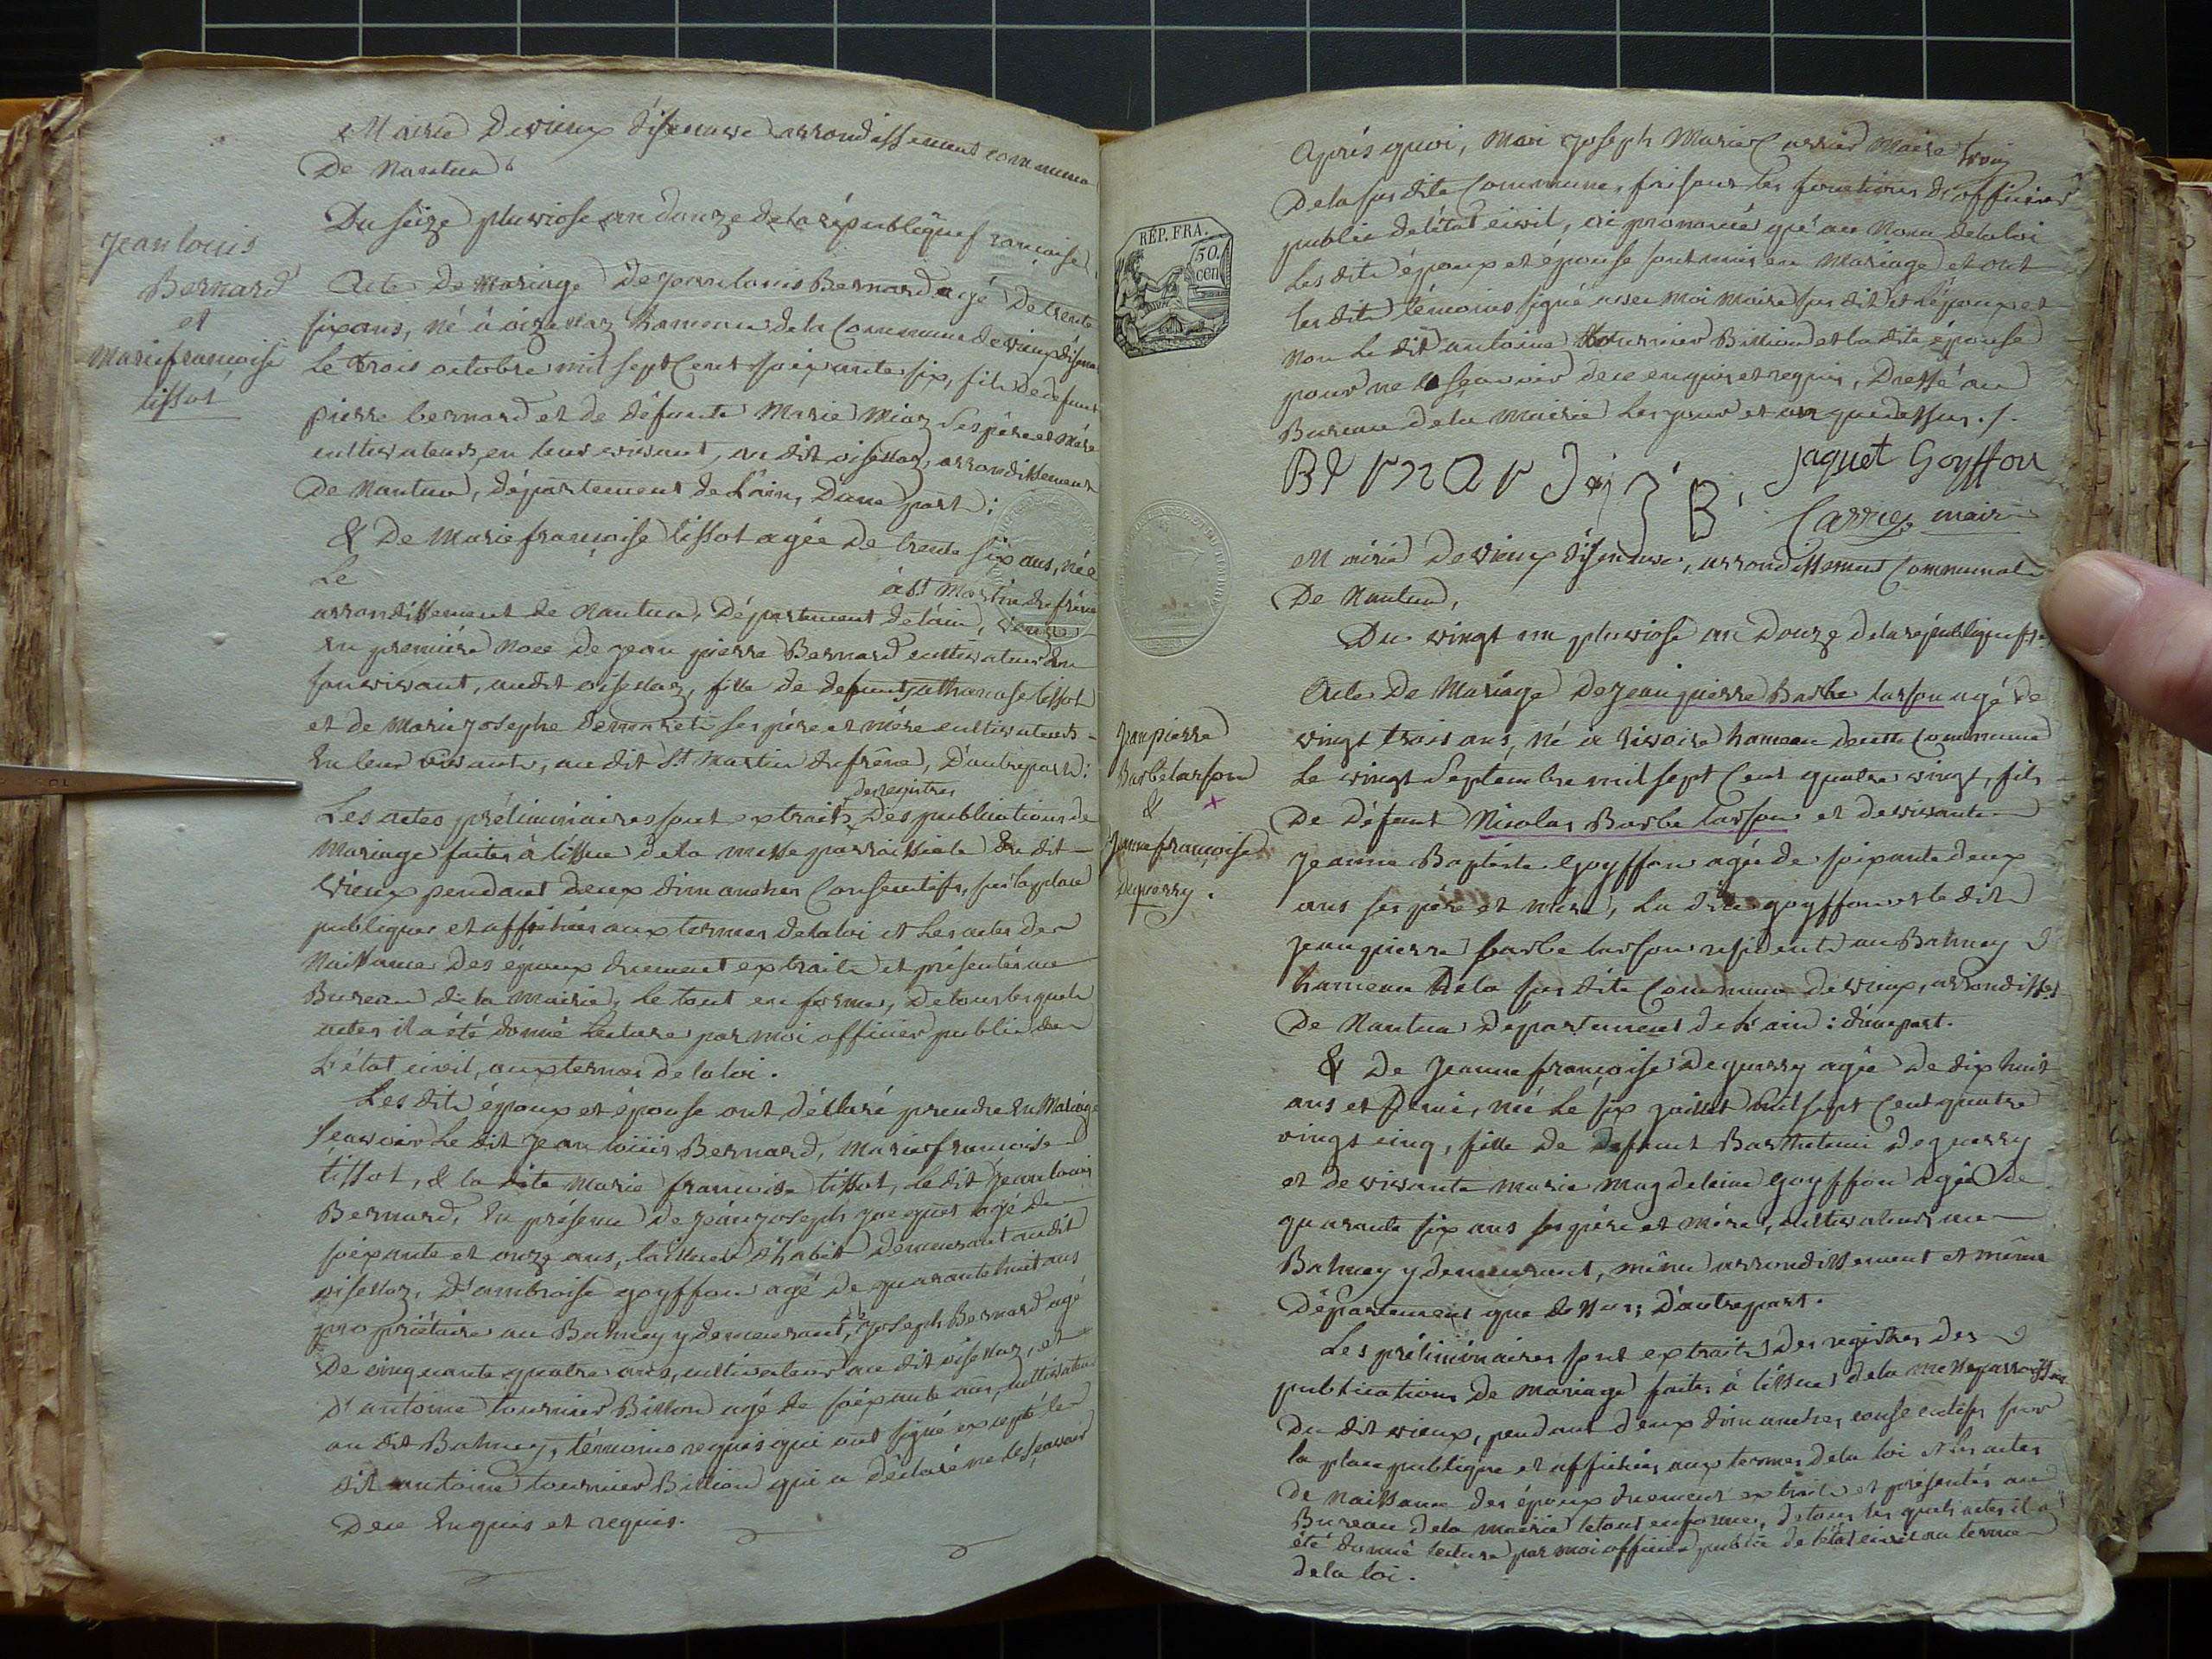 Mairie de vieux d'isenave arrondissement communal
De Nantua
Du seize pluviose an douze de la république françoise
Jean louis
Bernard
et
Marie françoise
tissot
Acte De Mariage De Jean louis Bernard agé De trente
six ans, né à oizellaz hameau de la Commune de vieux d'isenave
Le trois octobre mil sept Cent soixante six, fils de defunt
pierre bernard et de défunte Marie Miaz Ses père et Mère
cultivateurs en leur vivant, au dit oisellaz, arrondissement
De Nantua, département de L'ain, D'une part ;
& De Marie françoise tissot agée De trente six ans, née
Le à St Martin du frêne
arrondissement de Nantua, Département de l'ain, veuve
en première Noce De jean pierre Bernard cultivateur en
son vivant, audit oisellaz, fille de defunt athanase tissot
et de Marie Josephe ses père et mère cultivateurs
En leur vivant, au dit St Martin du frêne, D'autre part ;
des registres
Les actes préliminaires sont extraits Des publications de
Mariage faites à l'issue de la messe parroissiale du dit
Vieux pendant deux dimanches Consecutifs, sur la place
publique et affichées aux termes de la loi et Les actes de
Naissance Des époux duement extraits et présentés au
Bureau de la Mairie, Le tout en forme, De tous lesquels
actes il a été donné Lecture par moi officier public de
L'état civil, aux termes de la loi.
Les dits époux et épouse ont Déclaré prendre En Mariage
Scavoir Le dit Jean louis Bernard, Marie françoise
tissot, & la dite Marie françoise tissot, Le dit Jean louis
Bernard, En présence De jean joseph jacquet agé de
soixante et onze ans, tailleur d'habit Demeurant audit
oisellaz, D'ambroise goyffon agé de quarante huit ans
propriétaire au Balmey y demeurant, de Joseph Bernard agé
De cinquante quatre ans, cultivateur au dit oisellaz, et
D'antoine tournier Billion agé de soixante ans, cultivateur
au dit Balmey, témoins requis qui ont signé excepté le
dit antoine tournier Billion qui a déclaré ne le scavoir
De ce Enquis et requis.
Après quoi, Moi Joseph Marie Carrier Maire
De la sus dite Commune, faisant les fonctions d'officier
public de l'état civil, ai prononcé qu'au Nom de la loi
Les dits époux et épouse sont unis en Mariage et ont
Les dits témoins signé avec Moi Maire sus dit et L'époux et
Non Le dit antoine tournier Billion et la dite épouse
pour ne le scavoir de ce enquis et requis, Dressé au
Bureau de la Mairie Les jour et an que dessus ./.
RÉP. FRA.
50.
cen
jaquet Goyffon
B
Carrier maire
Mairie De vieux d'isenave, arrondissement Communal
De Nantua,
Du vingt un pluviose an Douze de la république fse
Jean pierre
Barbe larson
&
Jeanne françoise
deguerry.
Acte De Mariage De jean pierre Barbe larson agé de
vingt trois ans, né à hameau de cette Commune
Le vingt Septembre mil sept Cent quatre vingt, fils
De défunt Nicolas Barbe larson et de vivante
Jeanne Baptiste Goyffon agée de soixante deux
ans ses père et mère, La dite goyffon et le dit
Jean pierre barbe larson resident au Balmey
hameau De la sus dite Commune De vieux, arrondisst
De Nantua Département de L'ain : d'une part.
& De Jeanne françoise Deguerry agée De dix huit
ans et Demi, née Le six juillet mil sept Cent quatre
vingt cinq, fille De Defunt Barthelemi deguerry
et de vivante marie magdeleine goyffon agée de
quarante six ans ses père et mère, cultivateurs au
Balmey y demeurant, même arrondissement et même
Département que dessus ; D'autre part.
Les préliminaires sont extraits des registres des
publications De Mariage faites à l'issue de la messe parroissiale
Du dit vieux, pendant deux dimanches consecutifs sur
la place publique et affichées aux termes de la loi et les actes
De Naissance des époux duement extraits et présentés au
Bureau de la mairie le tout en forme, de tous les quels actes il a
été donné lecture par moi officier public de l'état civil au terme
de la loi.